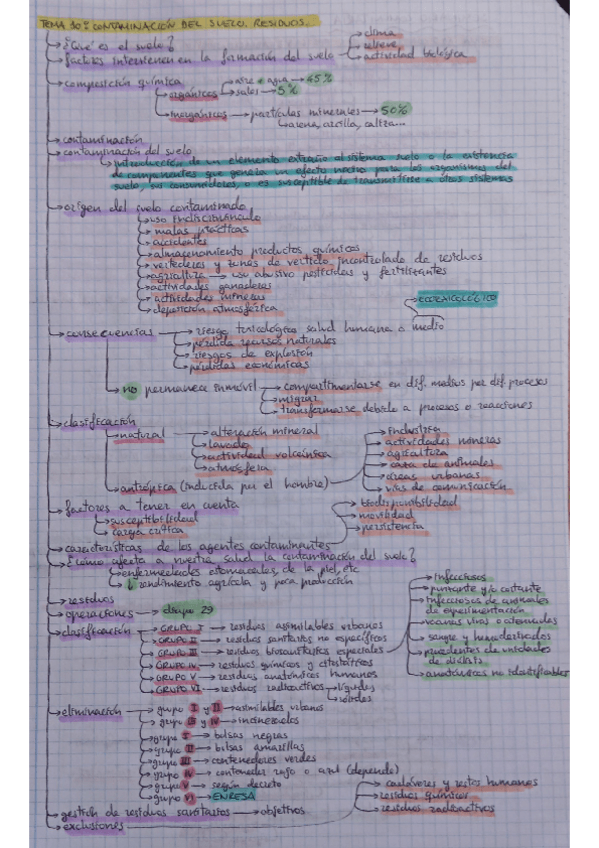 TEMA 10: CONTAMINACIÓN DEL SUELO. RESIDUOS.
→ ¿Qué es el suelo?
→ factores intervienen en la formación del suelo → clima
→ relieve
→ actividad biológica
→ composición química
→ orgánicos → aire + agua → 45%
→ sales → 5%
→ inorgánicos → partículas minerales → 50%
→ arena, arcilla, caliza...
→ contaminación
→ contaminación del suelo
→ introducción de un elemento extraño al sistema suelo o la existencia
de componentes que genera un efecto nocivo para los organismos del
suelo, sus consumidores, o es susceptible de transmitirse a otros sistemas
→ origen del suelo contaminado
→ uso indiscriminado
→ malas prácticas
→ accidentes
→ almacenamiento productos químicos
→ vertederos y zonas de vertido incontrolado de residuos
→ agricultura → uso abusivo pesticidas y fertilizantes
→ actividades ganaderas
→ actividades mineras
→ deposición atmosférica
→ ECOTOXICOLÓGICO
→ consecuencias → riesgo toxicológico salud humana o medio
→ pérdida recursos naturales
→ riesgos de explosión
→ pérdidas económicas
→ no permanece inmóvil → compartimentarse en dif. medios por dif procesos
→ migrar
→ transformarse debido a procesos o reacciones
→ clasificación
→ natural → alteración mineral
→ lavado
→ actividad volcánica
→ atmósfera
→ antrópica (inducida por el hombre) → industria
→ actividades mineras
→ agricultura
→ de animales
→ áreas urbanas
→ vías de comunicación
→ factores a tener en cuenta
→ susceptibilidad
→ carga crítica
→ características de los agentes contaminantes → biodisponibilidad
→ movilidad
→ persistencia
→ ¿Cómo afecta a nuestra salud la contaminación del suelo?
→ enfermedades estomacales, de la piel, etc
→ ↓ rendimiento agrícola y poca producción
→ residuos
→ operaciones → diapo 29
→ clasificación → GRUPO I → residuos asimilables urbanos
→ GRUPO II → residuos sanitarios no específicos
→ GRUPO III → residuos biosanitarios especiales → infecciosos
→ punzante y/o cortante
→ infecciosos de animales de experimentación
→ vacunas vivas o atenuadas
→ sangre y hemoderivados
→ procedentes de unidades de diálisis
→ anatómicos no identificables
→ GRUPO IV → residuos químicos y citostáticos
→ GRUPO V → residuos anatómicos humanos
→ GRUPO VI → residuos radioactivos → líquidos
→ sólidos
→ eliminación → grupo I y II → asimilables urbanos
→ grupo III y IV → incinerados
→ grupo I → bolsas negras
→ grupo II → bolsas amarillas
→ grupo III → contenedores verdes
→ grupo IV → contenedor rojo o azul (depende)
→ grupo V → según decreto
→ grupo VI → ENRESA
→ gestión de residuos sanitarios → objetivos
→ exclusiones → cadáveres y restos humanos
→ residuos químicos
→ residuos radioactivos